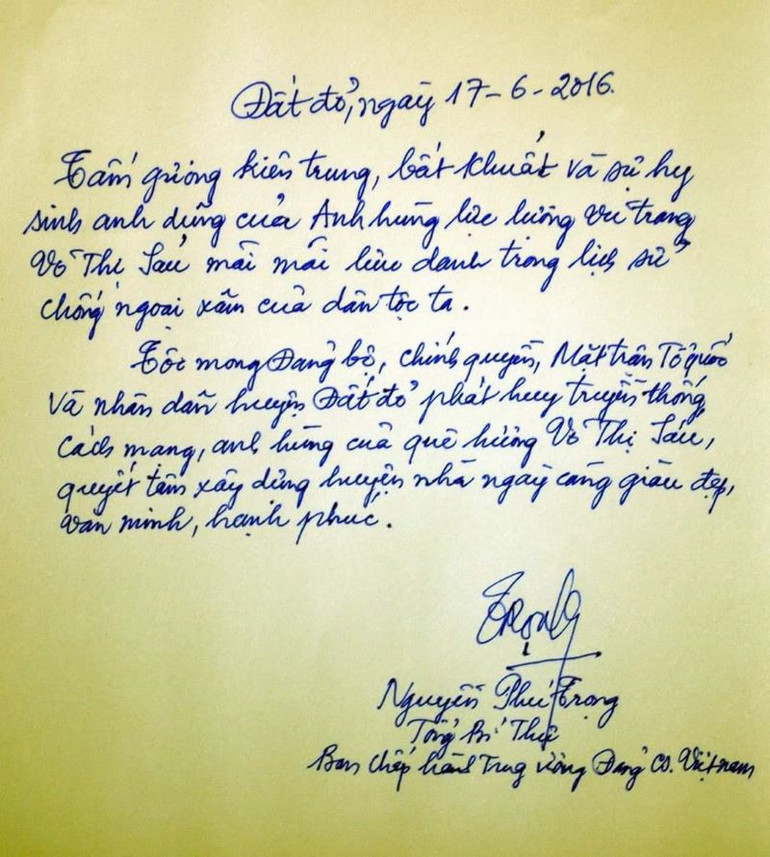 Đất đỏ, ngày 17-6-2016.
Tấm gương kiên trung, bất khuất và sự hy
sinh anh dũng của Anh hùng lực lượng vũ trang
Võ Thị Sáu mãi mãi lưu danh trong lịch sử
chống ngoại xâm của dân tộc ta.
Tôi mong Đảng bộ, chính quyền, Mặt trận Tổ quốc
và nhân dân huyện Đất đỏ phát huy truyền thống
cách mạng, anh hùng của quê hương Võ Thị Sáu,
quyết tâm xây dựng huyện nhà ngày càng giàu đẹp,
văn minh, hạnh phúc.
Trọng
Nguyễn Phú Trọng
Tổng Bí Thư
Ban chấp hành Trung ương Đảng CS. Việt nam